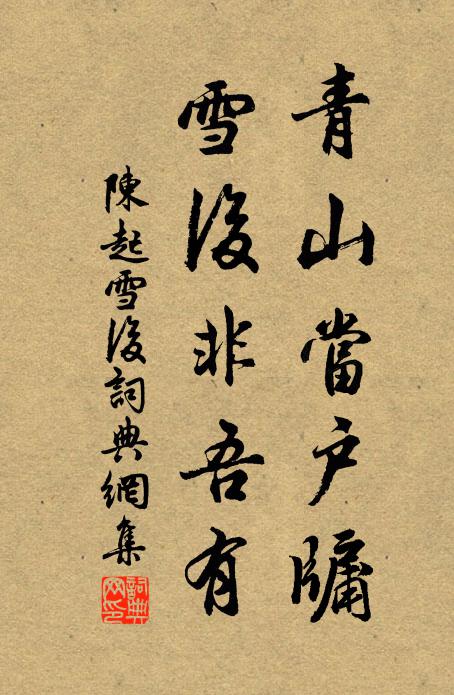 青山當戶牖
雪後非吾有
陳起雪後詞典網集
詞典網印